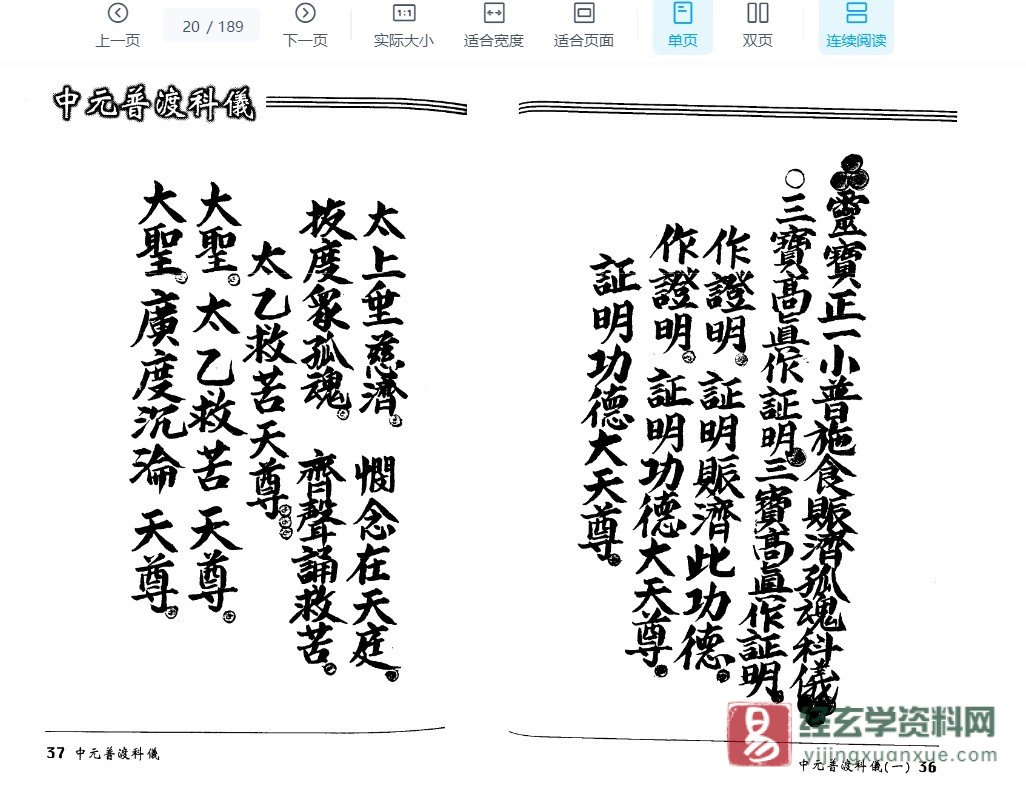 上一页
20 / 189
下一页
1:1
实际大小
适合宽度
适合页面
单页
双页
连续阅读
中元普渡科儀
靈寶正一小普施食賑濟孤魂科儀
三寶高眞作証明三寶高眞作証明
作證明 証明賑濟此功德
作證明 証明功德大天尊
証明功德大天尊
太上垂慈濟 憫念在天庭
拔度眾孤魂 齊聲誦救苦
太乙救苦天尊
大聖 太乙救苦天尊
大聖 廣度沉淪天尊
37 中元普渡科儀
中元普渡科儀(一) 36
易
经玄学资料网
yijingxuanxue.com